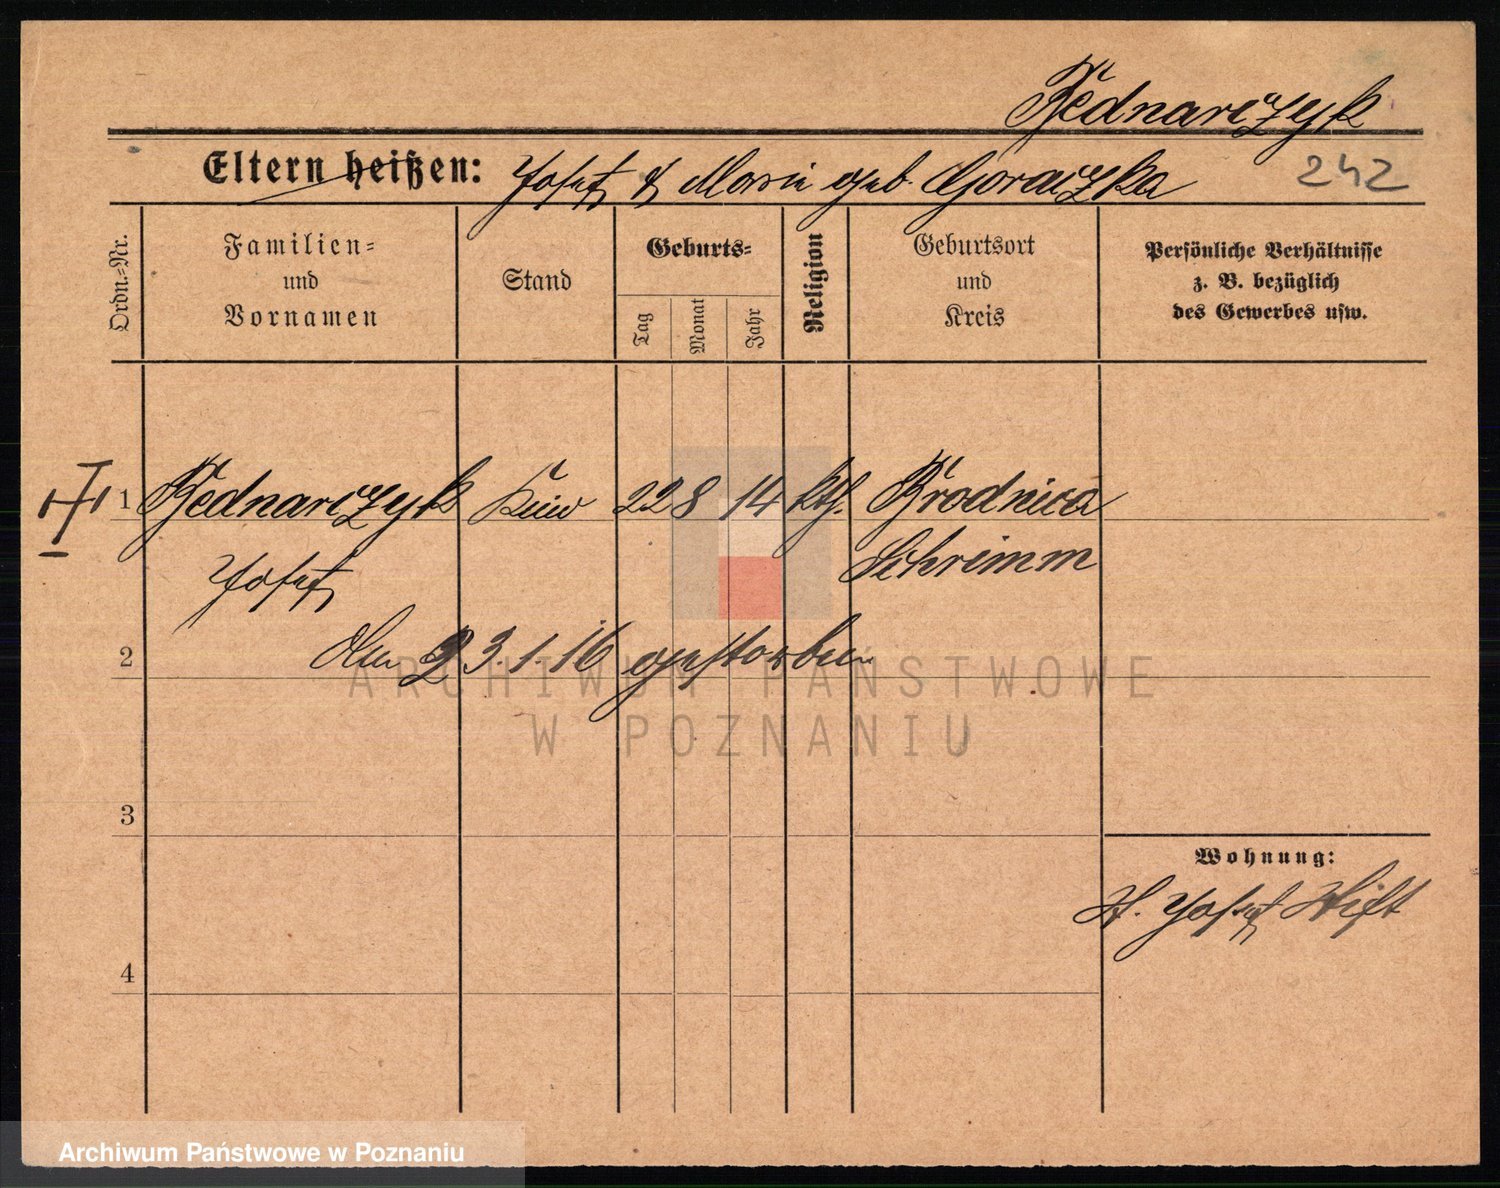 Bednarczyk
Eltern heißen: Josef & Marie geb. Goraczka 242
Ordn.-Nr.
Familien-
und
Vornamen
Stand
Geburts-
Tag
Monat
Jahr
Religion
Geburtsort
und
Kreis
Persönliche Verhältnisse
z. B. bezüglich
des Gewerbes usw.
1 Bednarczyk Kind 22 8 14 kth. Brodnica
Josef Schrimm
2 den 23.1.16 gestorben
3
4
Wohnung:
St. Josef Stift
ARCHIWUM PAŃSTWOWE
W POZNANIU
Archiwum Państwowe w Poznaniu